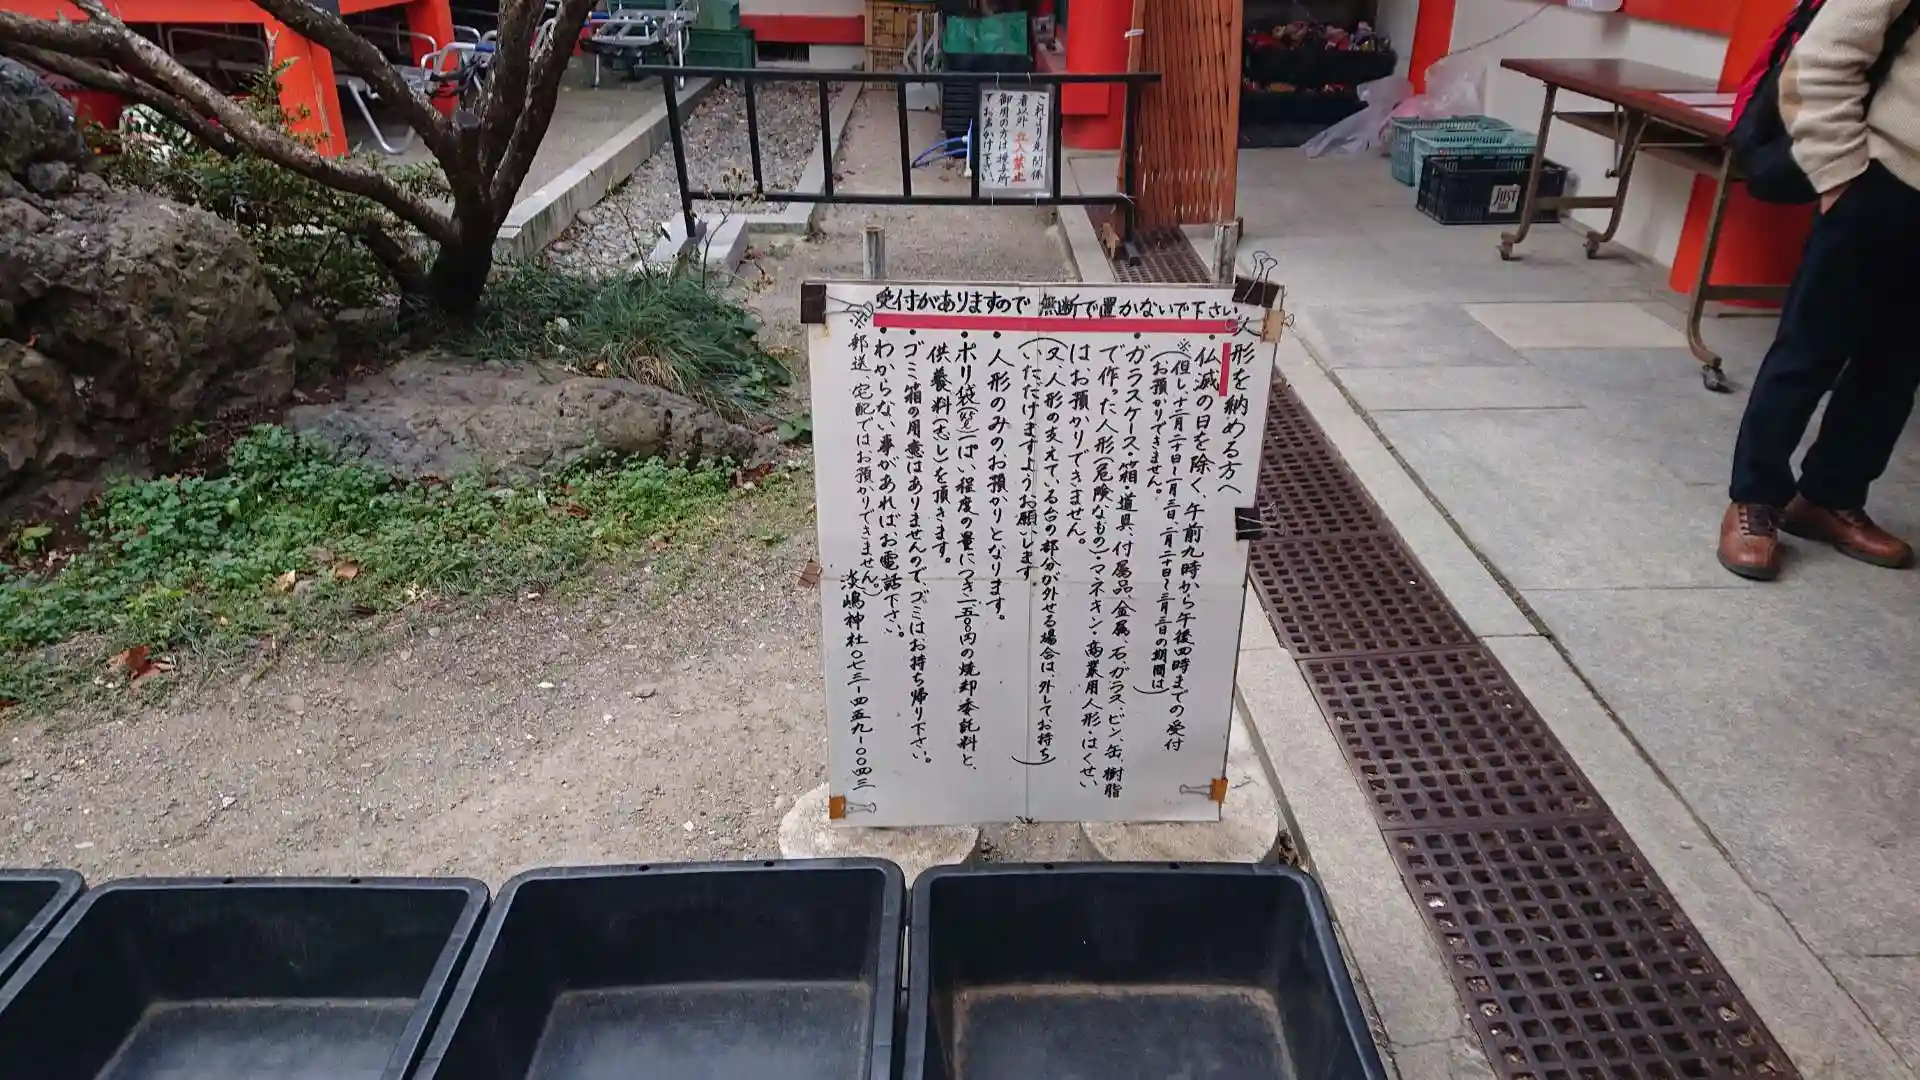 これより先関係
者以外立入禁止
御用の方は授与所
でお声がけ下さい。
受付がありますので無断で置かないで下さい
人形を納める方へ
・仏滅の日を除く、午前九時から午後四時までの受付
※(但し、十二月二十日〜一月三日、二月二十日〜三月三日の期間は
お預かりできません。)
・ガラスケース・箱・道具、付属品、金属、石、ガラス、ビン、缶、樹脂
で作った人形(危険なもの)・マネキン・商業用人形・はくせい
は、お預かりできません。
(又、人形の支えている台の部分が外せる場合は、外してお持ち
いただけますようお願いします)
・人形のみのお預かりとなります。
・ポリ袋一ぱい程度の量につき一五〇円の焼却委託料と、
供養料(志し)を頂きます。
・ゴミ箱の用意はありませんので、ゴミはお持ち帰り下さい。
・わからない事があればお電話下さい。
※郵送、宅配では、お預かりできません。)
淡嶋神社〇七三-四五九-〇〇四三
JUST